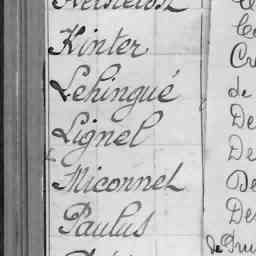 Kinter
Lehingué
Lignel
Miconnet
Paulus
Cr
de
De
De
De
De